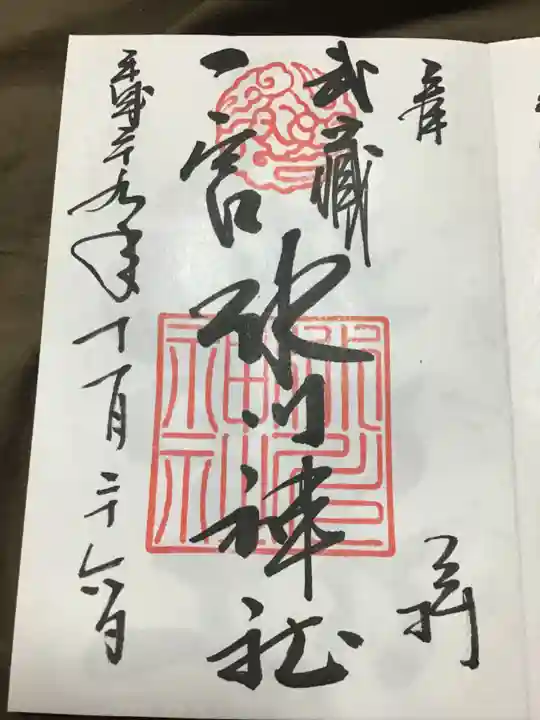 奉拝
武蔵
一宮
氷川神社
平成二十九年十一月二十六日
氷川神社